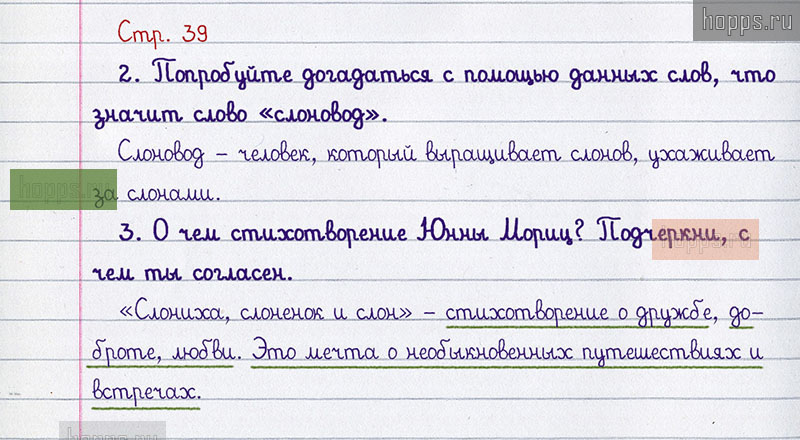 hopps.ru
Стр. 39
2. Попробуйте догадаться с помощью данных слов, что
значит слово «слоновод».
Слоновод – человек, который выращивает слонов, ухаживает
hopps.ru
за слонами.
3. О чем стихотворение Юнны Мориц? Подчеркни, с
hopps.ru
чем ты согласен.
«Слониха, слоненок и слон» – стихотворение о дружбе, до-
броте, любви. Это мечта о необыкновенных путешествиях и
встречах.
hopps.ru